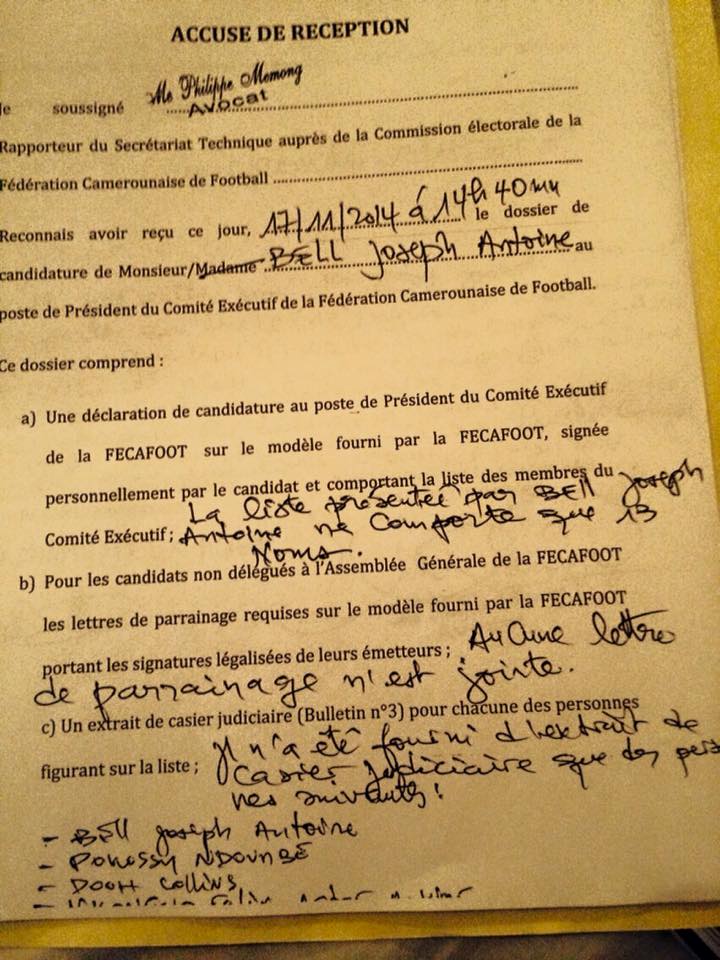 ACCUSE DE RECEPTION
Me Philippe Memong
Je soussigné Avocat
Rapporteur du Secrétariat Technique auprès de la Commission électorale de la
Fédération Camerounaise de Football
Reconnais avoir reçu ce jour, 17/11/2014 à 14h 40mn le dossier de
candidature de Monsieur/Madame BELL Joseph Antoine au
poste de Président du Comité Exécutif de la Fédération Camerounaise de Football.
Ce dossier comprend :
a) Une déclaration de candidature au poste de Président du Comité Exécutif
de la FECAFOOT sur le modèle fourni par la FECAFOOT, signée
personnellement par le candidat et comportant la liste des membres du
La liste présentée par BELL Joseph
Comité Exécutif ; Antoine ne comporte que 13
Noms.
b) Pour les candidats non délégués à l'Assemblée Générale de la FECAFOOT
les lettres de parrainage requises sur le modèle fourni par la FECAFOOT
portant les signatures légalisées de leurs émetteurs ; Aucune lettre
de parrainage n'est jointe.
c) Un extrait de casier judiciaire (Bulletin n°3) pour chacune des personnes
figurant sur la liste ; Il n'a été fourni d'extrait de
Casier judiciaire que des pers
nes suivantes !
- BELL Joseph Antoine
- POKOSSY NDOUMBE
- DOOH Collins